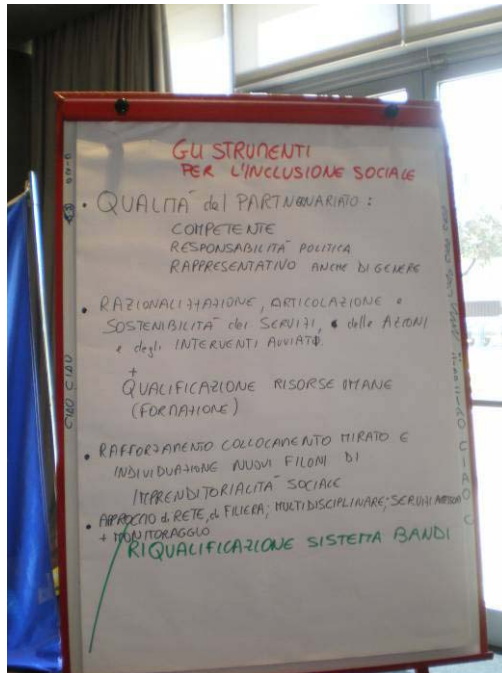 GLI STRUMENTI
PER L'INCLUSIONE SOCIALE
• QUALITÀ del PARTNENARIATO :
COMPETENTE
RESPONSABILITÀ POLITICA
RAPPRESENTATIVO ANCHE DI GENERE
• RAZIONALIZZAZIONE, ARTICOLAZIONE e
SOSTENIBILITÀ dei SERVIZI, delle AZIONI
e degli INTERVENTI AVVIATI.
+
QUALIFICAZIONE RISORSE UMANE
(FORMAZIONE)
• RAFFORZAMENTO COLLOCAMENTO MIRATO E
INDIVIDUAZIONE NUOVI FILONI DI
IMPRENDITORIALITÀ SOCIALE
• APPROCCIO di RETE, di FILIERA; MULTIDISCIPLINARE; SERVIZI
+ MONITORAGGIO
RIQUALIFICAZIONE SISTEMA BANDI
CIAO CIAO
CIAO